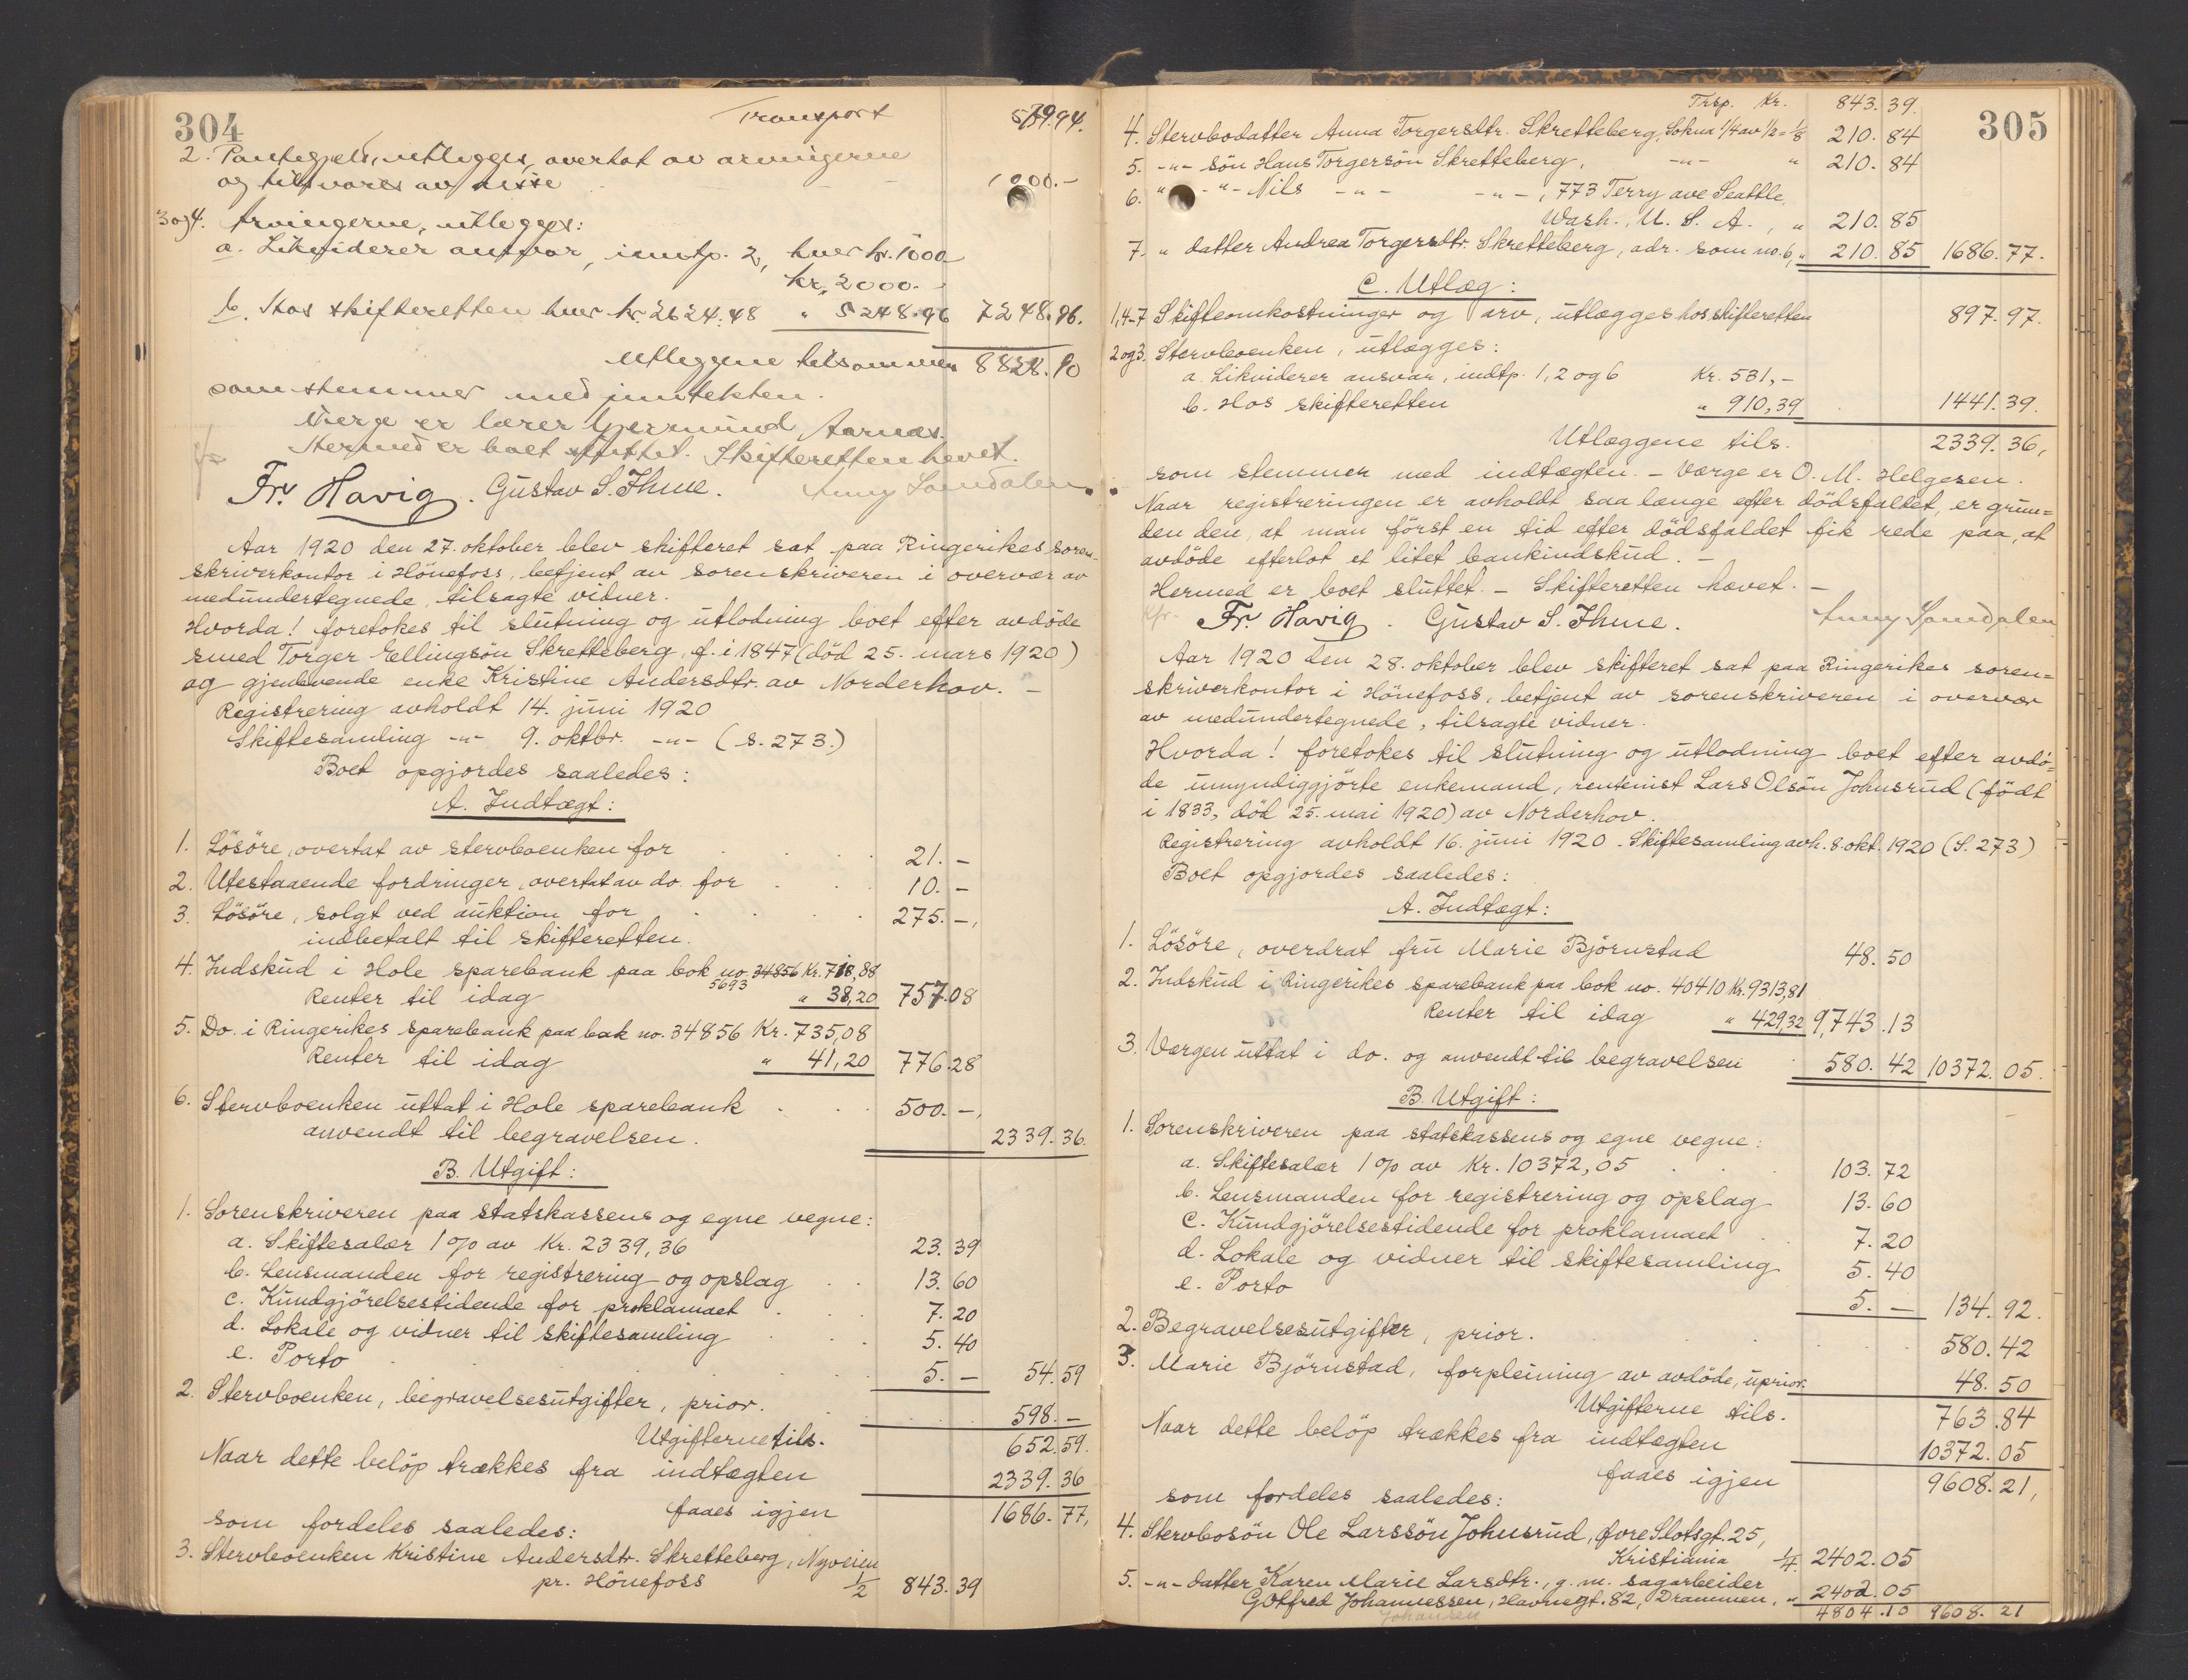 304
Transport 579.94.
2. Pantegjeld, utlegges, overtat av arvingerne
og tilsvares av disse 1000.-
3 og 4. Arvingerne, utlegges:
a. Likviderer ansvar, inntp. 2, hver kr. 1000
kr. 2000.-
b. Hos skifteretten hver kr. 2624.48 " 5248.96 7248.96.
Utleggene tilsammen 8828.90
som stemmer med inntekten.
Verge er lærer Gjermund Aarnæs.
Hermed er boet sluttet. Skifteretten hevet.
Fr. Havig. Gustav S. Ihme. Anny Lomdalen
Aar 1920 den 27. oktober blev skifteret sat paa Ringerikes soren-
skriverkontor i Hönefoss, betjent av sorenskriveren i overvær av
medundertegnede, tilsagte vidner.
Hvorda! foretokes til slutning og utlodning boet efter avdöde
smed Torger Ellingsön Skretteberg, f. i 1847 (död 25. mars 1920)
og gjenlevende enke Kristine Andersdtr. av Norderhov. -
Registrering avholdt 14. juni 1920
Skiftesamling -"- 9. oktbr. -"- (s. 273.)
Boet opgjordes saaledes:
A. Indtægt:
1. Lösöre, overtat av stervboenken for 21. -
2. Utestaaende fordringer, overtat av do. for 10. -
3. Lösöre, solgt ved auktion for 275. -,
indbetalt til skifteretten.
4. Indskud i Hole sparebank paa bok no. 34856 Kr. 718,88
5693
Renter til idag " 38,20 757.08
5. Do. i Ringerikes sparebank paa bok no. 34856 Kr. 735,08
Renter til idag " 41,20 776.28
6. Stervboenken uttat i Hole sparebank 500. -,
anvendt til begravelsen. 2339.36.
B. Utgift:
1. Sorenskriveren paa statskassens og egne vegne:
a. Skiftesalær 1 % av Kr. 2339,36 23.39
b. Lensmanden for registrering og opslag 13.60
c. Kundgjörelsestidende for proklamaet 7.20
d. Lokale og vidner til skiftesamling 5.40
e. Porto 5. - 54.59
2. Stervboenken, begravelsesutgifter, prior. 598. -
Utgifterne tils. 652.59.
Naar dette belöp trækkes fra indtægten 2339.36
faaes igjen 1686.77,
som fordeles saaledes:
3. Stervboenken Kristine Andersdtr. Skretteberg, Nyveien
pr. Hönefoss 1/2 843.39
305
Trsp. Kr. 843.39.
4. Stervbodatter Anna Torgersdtr. Skretteberg, Sokna 1/4 av 1/2 = 1/8 210.84
5. -"- sön Hans Torgersön Skretteberg, -"- " 210.84
6. " -"- Nils -"- -"-, 773 Terry ave Seattle,
Wash., U. S. A., " 210.85
7. " datter Andrea Torgersdtr. Skretteberg, adr. som no. 6, " 210.85 1686.77.
C. Utlæg:
1,4-7 Skifteomkostninger og arv, utlægges hos skifteretten 897.97.
2 og 3. Stervboenken, utlægges:
a. Likviderer ansvar, indtp. 1, 2 og 6 Kr. 531,-
b. Hos skifteretten " 910,39 1441.39.
Utlæggene tils. 2339.36,
som stemmer med indtægten. - Værge er O. M. Helgesen.
Naar registreringen er avholdt saa længe efter dödsfaldet, er grun=
den den, at man först en tid efter dödsfaldet fik rede paa, at
avdöde efterlot et litet bankindskud. -
Hermed er boet sluttet. - Skifteretten hævet. -
Kfr. Fr. Havig. Gustav S. Ihme. Anny Lomdalen
Aar 1920 den 28. oktober blev skifteret sat paa Ringerikes soren=
skriverkontor i Hönefoss, betjent av sorenskriveren i overvær
av medundertegnede, tilsagte vidner.
Hvorda! foretokes til slutning og utlodning boet efter avdö=
de umyndiggjörte enkemand, rentenist Lars Olsön Johnsrud (födt
i 1833, död 25. mai 1920) av Norderhov.
Registrering avholdt 16. juni 1920. Skiftesamling avh. 8. okt. 1920 (S. 273)
Boet opgjordes saaledes:
A. Indtægt:
1. Lösöre, overdrat fru Marie Björnstad 48.50
2. Indskud i Ringerikes sparebank paa bok no. 40410 Kr. 9313,81
Renter til idag " 429,32 9,743.13
3. Værgen uttat i do. og anvendt til begravelsen 580.42 10372.05.
B. Utgift:
1. Sorenskriveren paa statskassens og egne vegne:
a. Skiftesalær 1 % av Kr. 10372,05 103.72
b. Lensmanden for registrering og opslag 13.60
c. Kundgjörelsestidende for proklamaet 7.20
d. Lokale og vidner til skiftesamling 5.40
e. Porto 5. - 134.92.
2. Begravelsesutgifter, prior. 580.42
3. Marie Björnstad, forpleining av avdöde, uprior. 48.50
Utgifterne tils. 763.84
Naar dette belöp trækkes fra indtægten 10372.05
faaes igjen 9608.21,
som fordeles saaledes:
4. Stervbosön Ole Larssön Johnsrud, Övre Slotsgt. 25,
Kristiania 1/4 2402.05
5. -"- datter Karen Marie Larsdtr., g. m. sagarbeider
Gotfred Johannessen, Havnegt. 82, Drammen, " 2402.05
Johansen 4804.10 9608.21